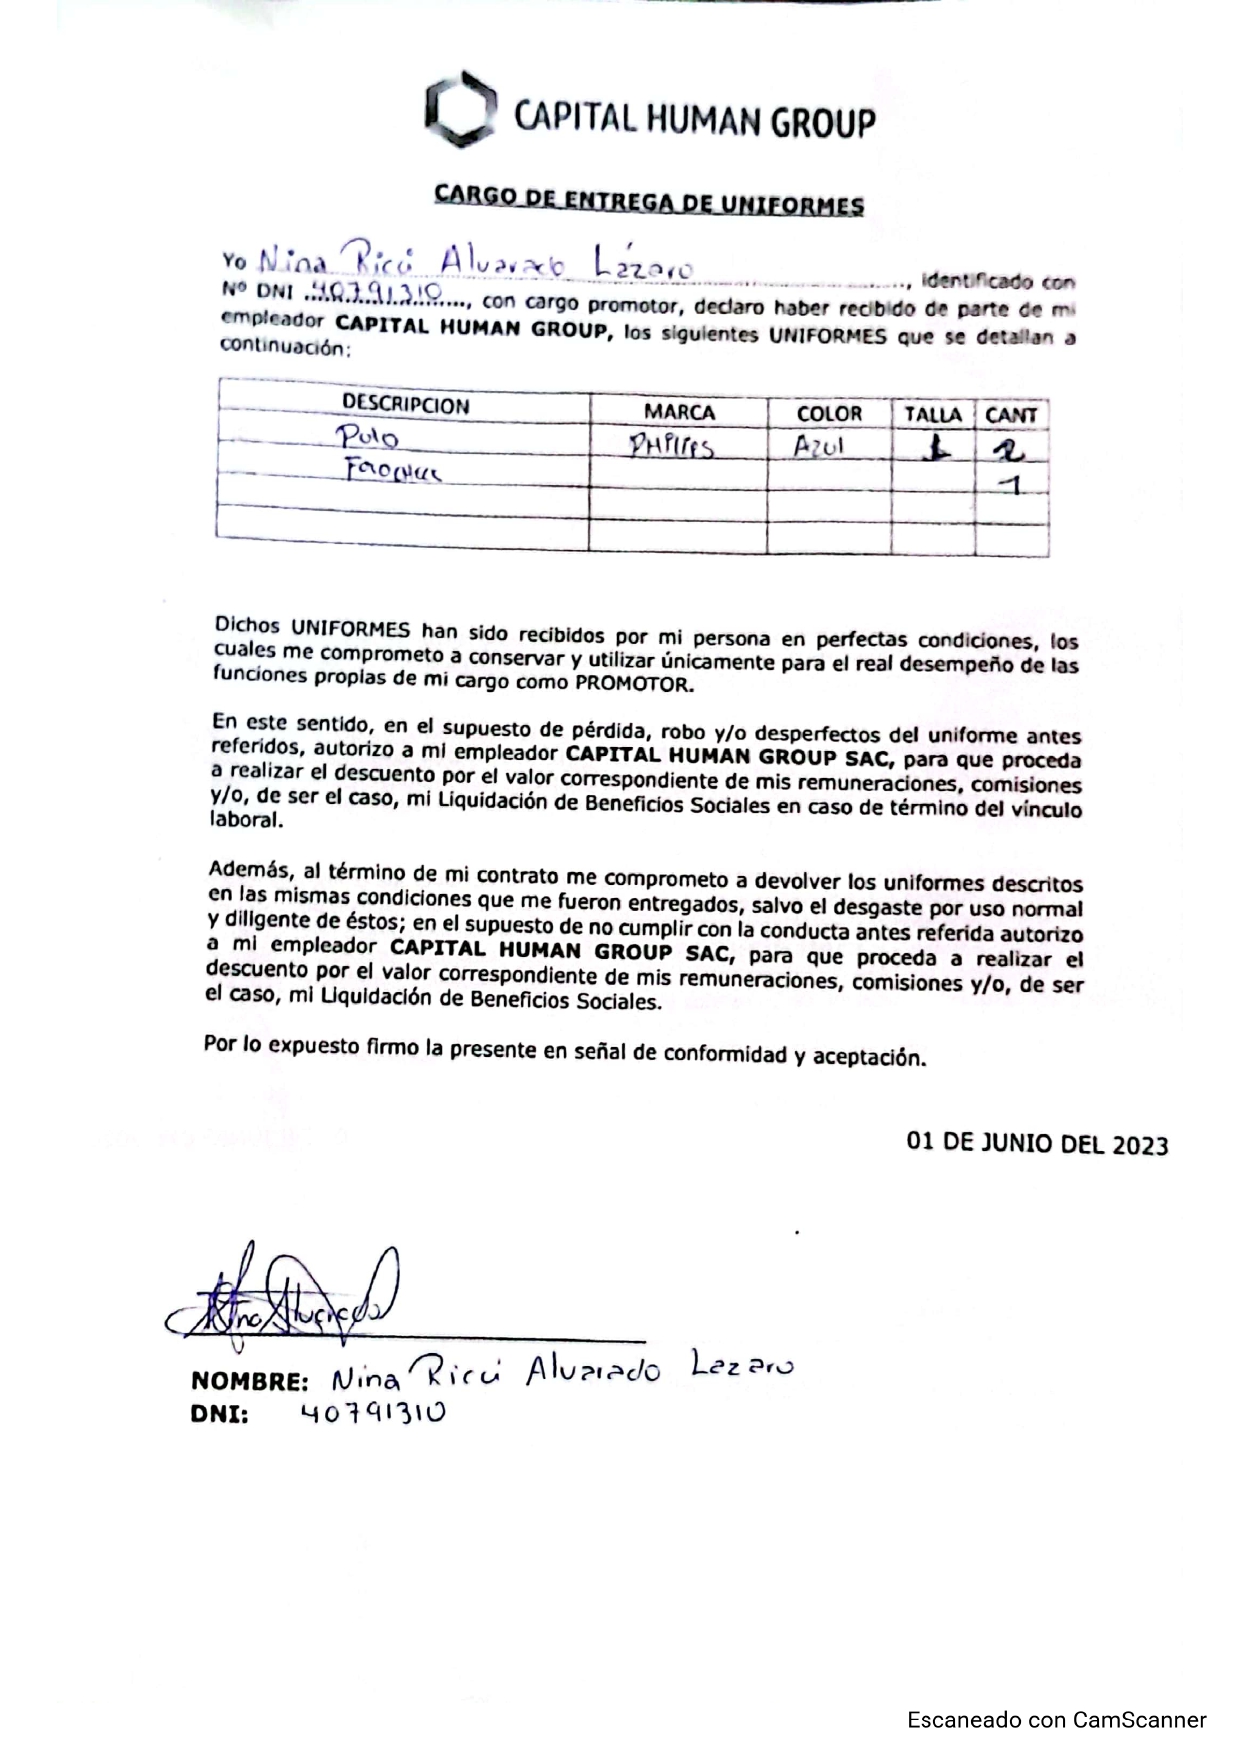 CAPITAL HUMAN GROUP
CARGO DE ENTREGA DE UNIFORMES
Yo Nina Ricci Alvarado Lázaro ........................, identificado con
Nº DNI ..40791310......, con cargo promotor, declaro haber recibido de parte de mi
empleador CAPITAL HUMAN GROUP, los siguientes UNIFORMES que se detallan a
continuación:
DESCRIPCION MARCA COLOR TALLA CANT
Polo Azul L 2
1
Dichos UNIFORMES han sido recibidos por mi persona en perfectas condiciones, los
cuales me comprometo a conservar y utilizar únicamente para el real desempeño de las
funciones propias de mi cargo como PROMOTOR.
En este sentido, en el supuesto de pérdida, robo y/o desperfectos del uniforme antes
referidos, autorizo a mi empleador CAPITAL HUMAN GROUP SAC, para que proceda
a realizar el descuento por el valor correspondiente de mis remuneraciones, comisiones
y/o, de ser el caso, mi Liquidación de Beneficios Sociales en caso de término del vínculo
laboral.
Además, al término de mi contrato me comprometo a devolver los uniformes descritos
en las mismas condiciones que me fueron entregados, salvo el desgaste por uso normal
y diligente de éstos; en el supuesto de no cumplir con la conducta antes referida autorizo
a mi empleador CAPITAL HUMAN GROUP SAC, para que proceda a realizar el
descuento por el valor correspondiente de mis remuneraciones, comisiones y/o, de ser
el caso, mi Liquidación de Beneficios Sociales.
Por lo expuesto firmo la presente en señal de conformidad y aceptación.
01 DE JUNIO DEL 2023
NOMBRE: Nina Ricci Alvarado Lazaro
DNI: 40791310
Escaneado con CamScanner